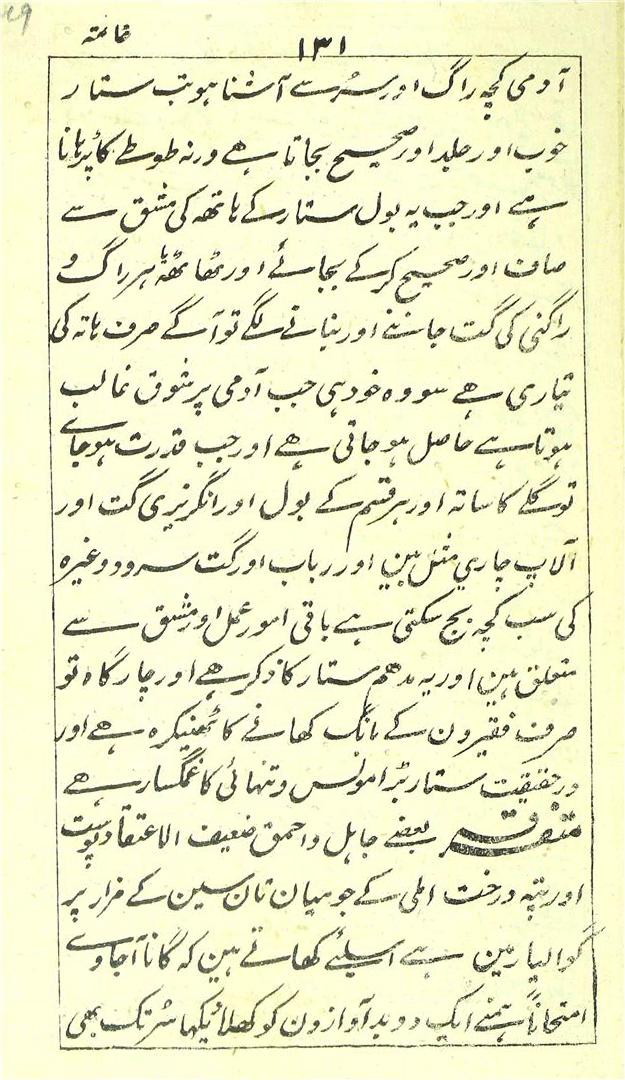 ۱۳۱
خاتمہ
آدمی کچہ راگ اور سُر سے آشنا ہو تب ستار
خوب اور جلد اور صحیح بجاتا ہے ورنہ طوطے کا پڑہانا
ہے اور جب یہ بول ستار کے ہاتھہ کی مشق سے
صاف اور صحیح کر کے بجائے اور ٹھاٹھہ ہر راگ و
راگنی کی گت جاننے اور بنانے لگے تو آگے صرف ہاتہ کی
تیاری ہے سو وہ خود ہی جب آدمی پر شوق غالب
ہوتا ہے حاصل ہو جاتی ہے اور جب قدرت ہو جاے
تو گلے کا ساتہ اور ہر قسم کے بول اور انگریزی گت اور
آلاپ چاری مثل بین اور رباب اور گت سرود وغیرہ
کی سب کچہ بج سکتی ہے باقی امور عمل اور مشق سے
متعلق ہین اور یہ مدھم ستار کا ذکر ہے اور چار گاہ تو
صرف فقیرون کے مانگ کھانے کا ٹھیکرہ ہے اور
درحقیقت ستار بڑا مونس و تنہائی کا غمگسار ہے
متفرقہ بعضے جاہل و احمق ضعیف الاعتقاد پوست
اور پتہ درخت املی کے جو میان تان سین کے مزار پر
گوالیار مین ہے اسلئے کھاتے ہین کہ گانا آجاوے
امتحاناً ہمنے ایک دو بد آوازون کو کھلا دیکہا سُر تک بھی